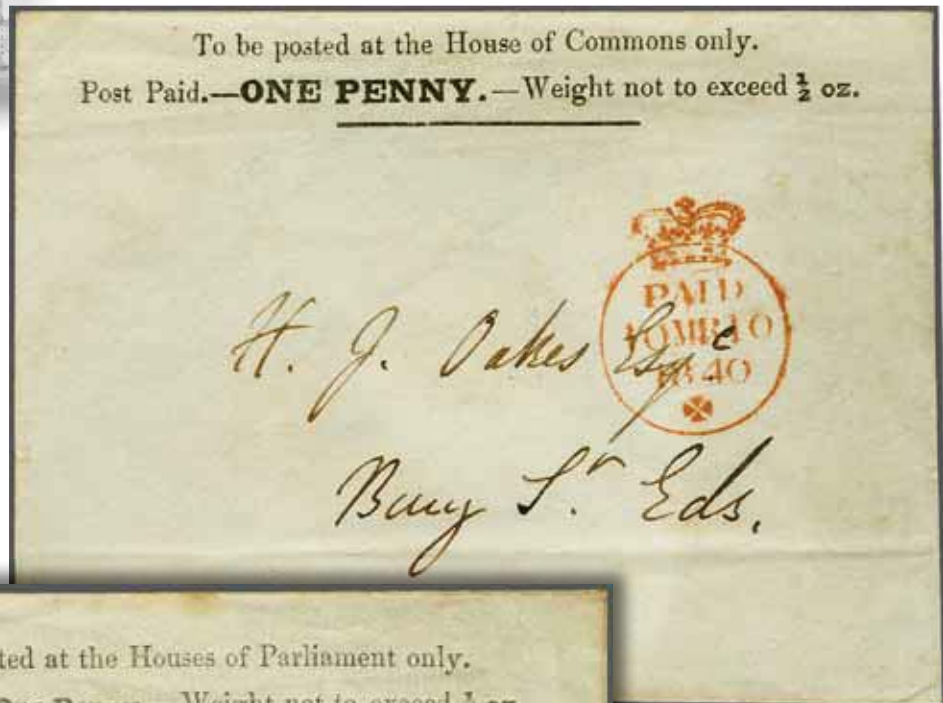 To be posted at the House of Commons only.
Post Paid.—ONE PENNY.—Weight not to exceed ½ oz.
PAID
1840
H. J. Oakes Esqr
Bury St. Eds.
ted at the Houses of Parliament only.
Weight not to exceed ½ oz.